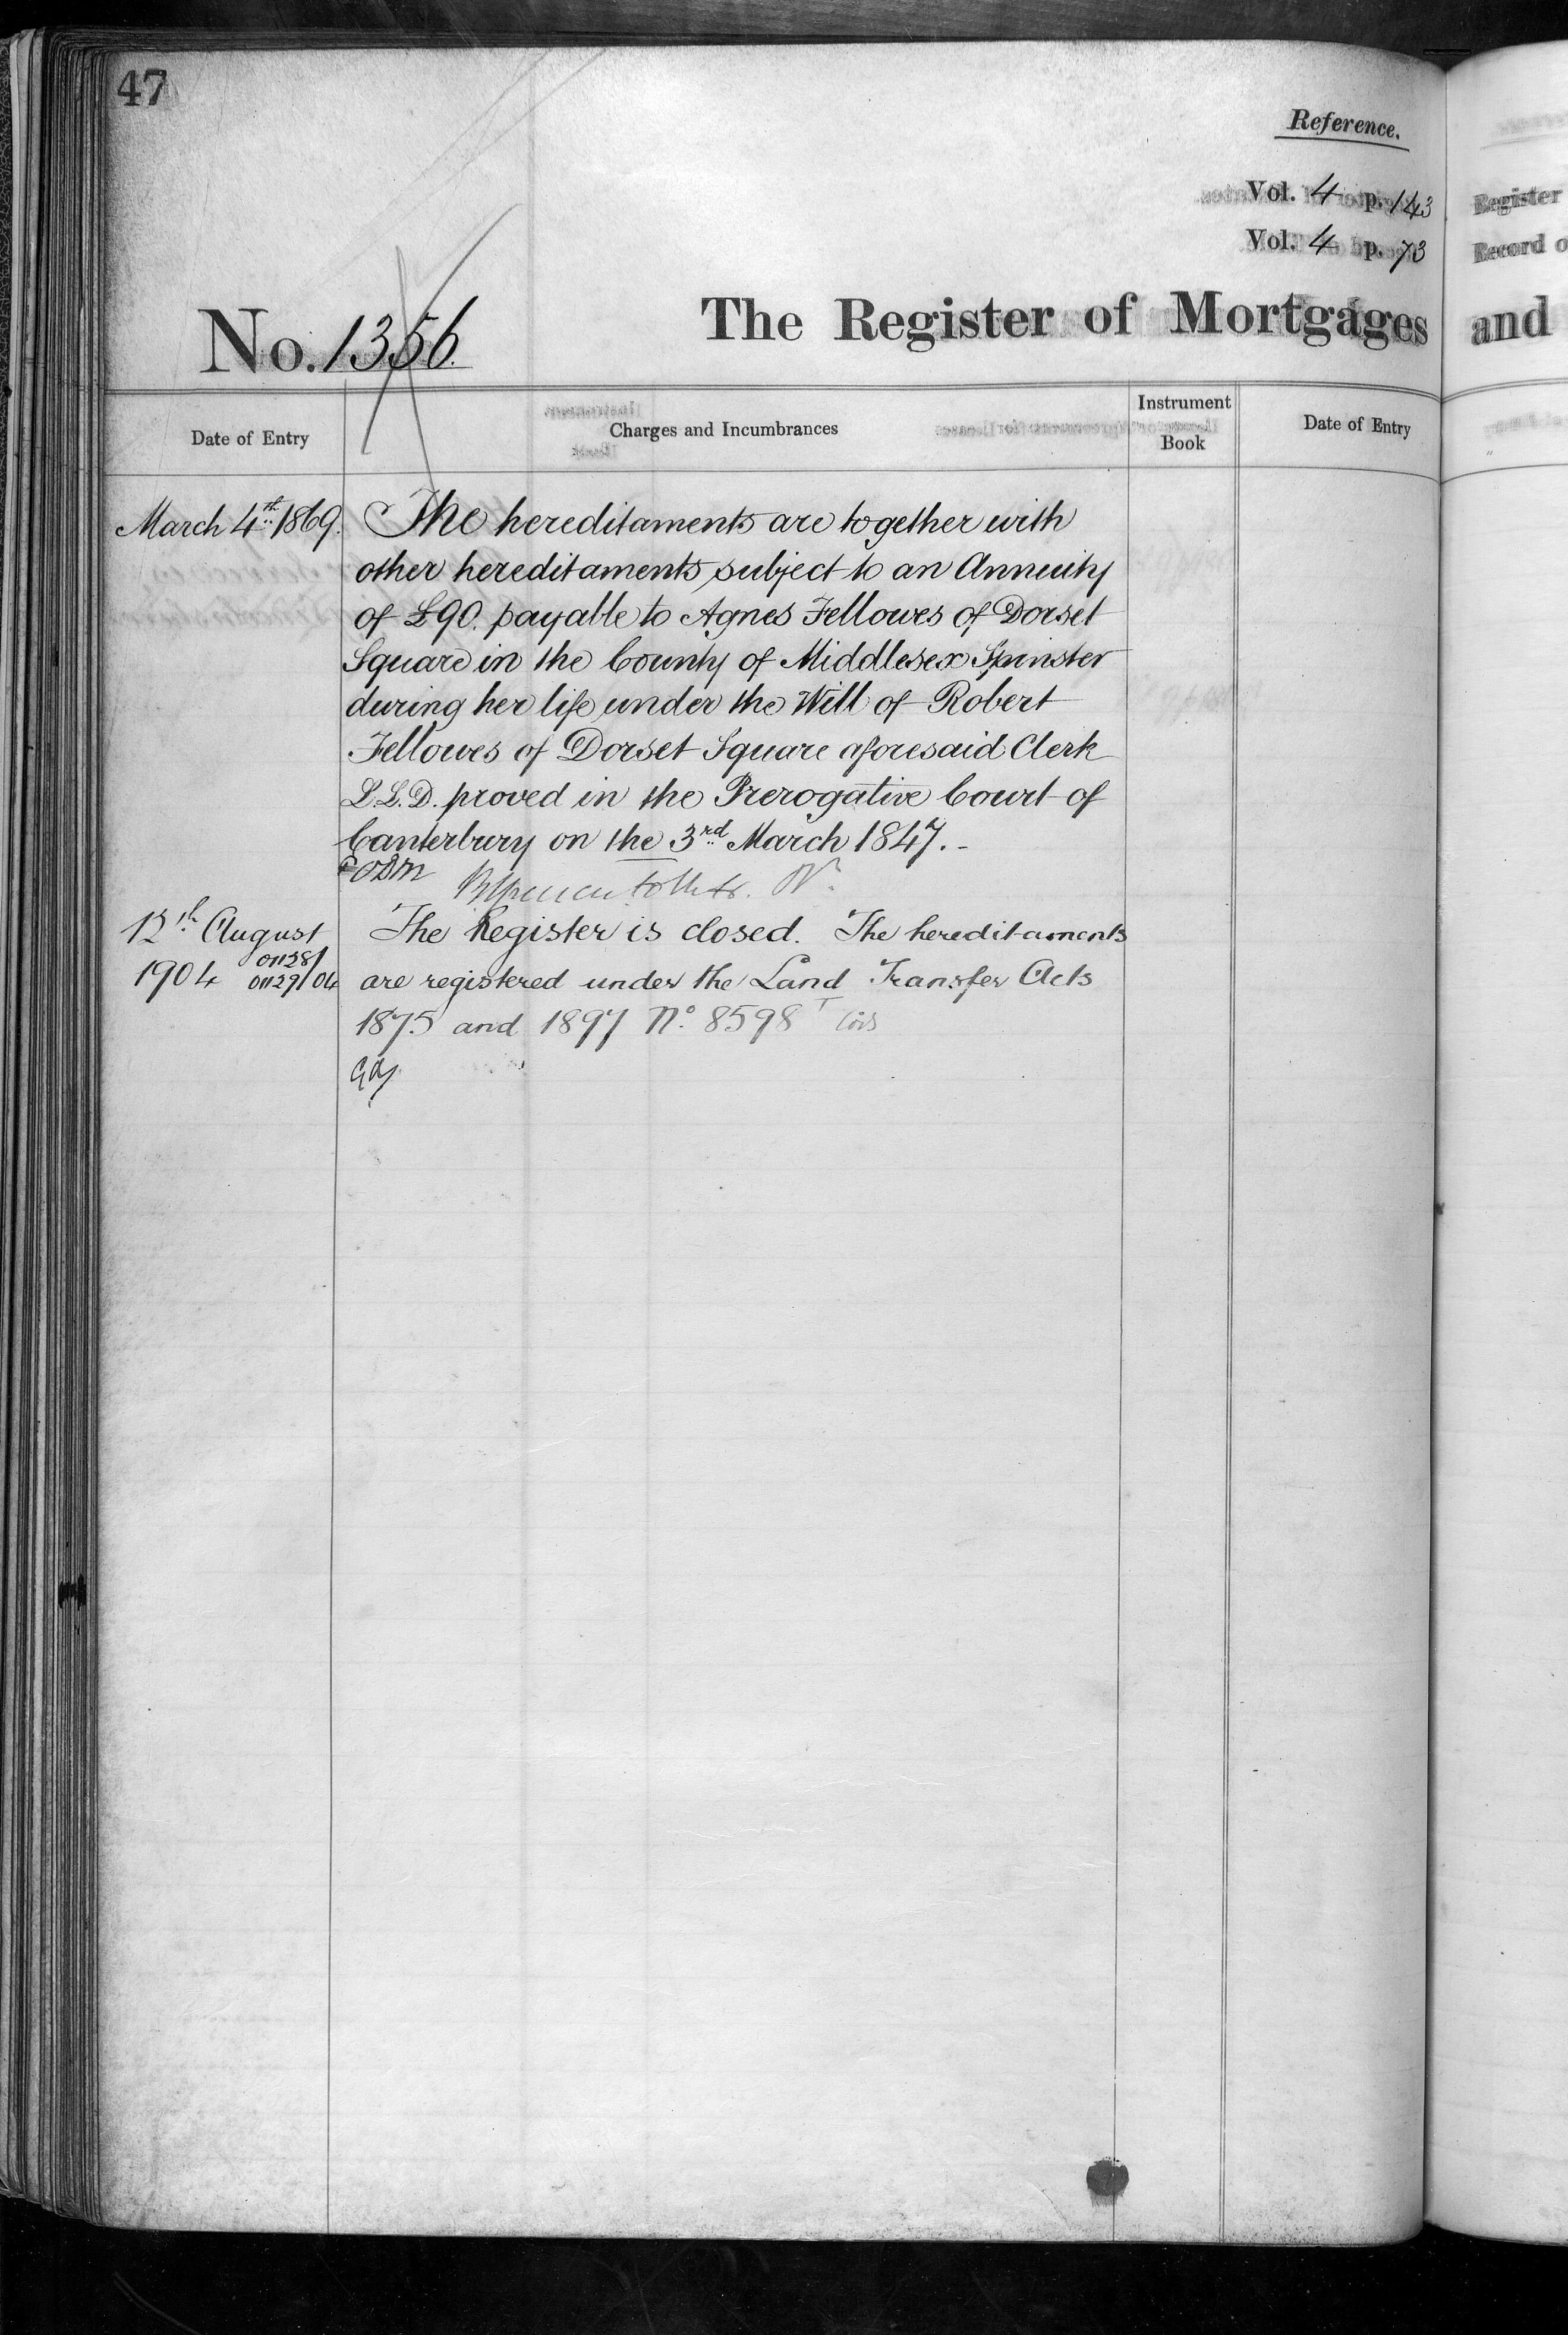 47
Reference.
Vol. 4 p. 143
Vol. 4 p. 73
No. 1356.
The Register of Mortgages
Date of Entry
Charges and Incumbrances
Instrument Book
Date of Entry
March 4th 1869.
The hereditaments are together with
other hereditaments subject to an Annuity
of £90. payable to Agnes Fellowes of Dorset
Square in the County of Middlesex Spinster
during her life under the Will of Robert
Fellowes of Dorset Square aforesaid Clerk
L.L.D. proved in the Prerogative Court of
Canterbury on the 3rd March 1847.-
12th August
1904
01128/
01129/04
The Register is closed. The hereditaments
are registered under the Land Transfer Acts
1875 and 1897 No. 8598
Register
Record o
and